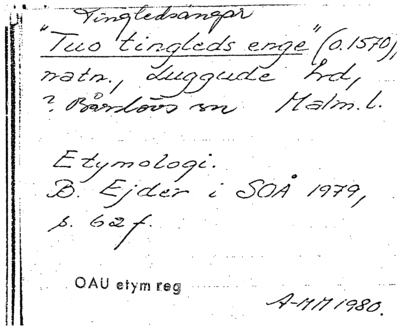 Tingledsängar
"Tuo tingleds enge" (o.1570),
natn., Luggude hd,
? Bårslövs sn Malm.l.
Etymologi.
B. Ejder i SOÅ 1979,
s. 62 f.
OAU etym reg
A-MM 1980.